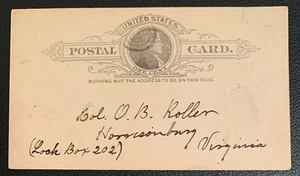 UNITED STATES
POSTAL CARD.
ONE CENT
NOTHING BUT THE ADDRESS TO BE ON THIS SIDE.
Col. O. B. Roller
Harrisonburg
(Lock Box 202) Virginia